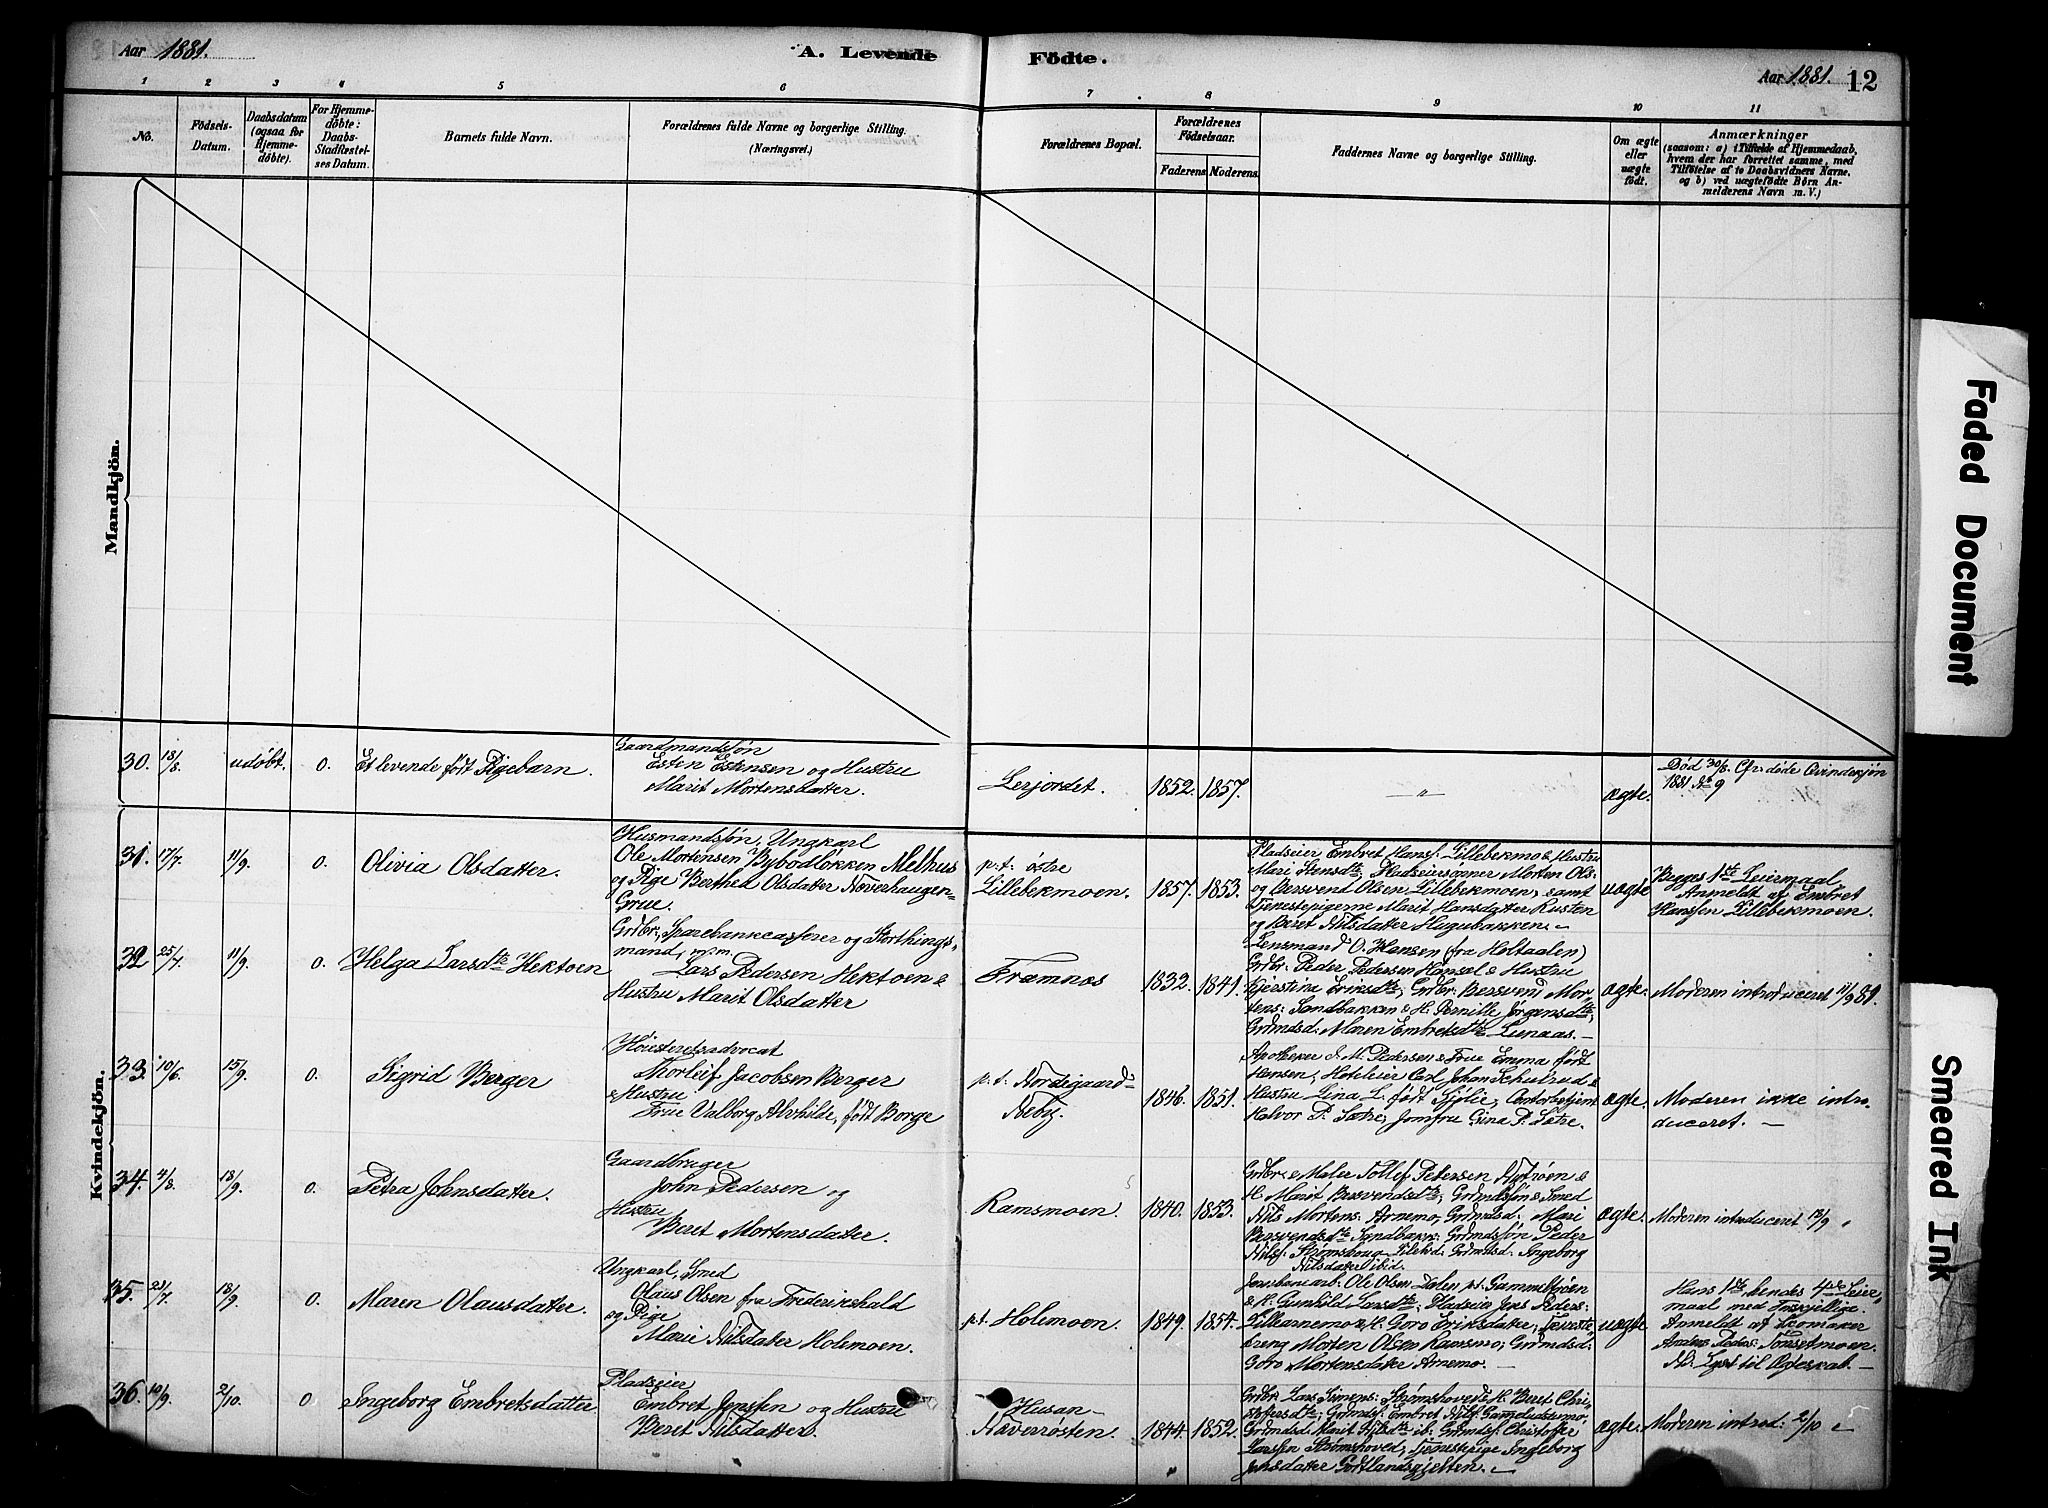 Aar 1881.
A. Levende Födte.
Aar 1881. 12
1 2 3 4 5 6 7 8 9 10 11
No.
Födsels-
Datum.
Daabsdatum
(ogsaa for
Hjemme-
döbte).
For Hjemme-
döbte:
Daabs-
Stadfæstel-
ses Datum.
Barnets fulde Navn.
Forældrenes fulde Navne og borgerlige Stilling.
(Næringsvei.)
Forældrenes Bopæl.
Forældrenes
Födselsaar.
Faderens. Moderens.
Faddernes Navne og borgerlige Stilling.
Om ægte
eller
uægte
födt.
Anmærkninger
(saasom: a) i Tilfælde af Hjemmedaab,
hvem der har forrettet samme, med
Tilföielse af to Daabsvidners Navne,
og b) ved uægtefödte Börn An-
melderens Navn m. V.)
Mandkjön.
Kvindekjön.
30. 18/8. udøbt. 0. Et levende født Pigebarn.
Gaardmandssøn
Esten Estensen og Hustru
Marit Mortensdatter.
Lerjordet. 1852. 1857. " ægte.
Død 30/8. Cfr. døde Qvindekjøn
1881 No 9
31. 17/7. 11/9. 0. Olivia Olsdatter.
Husmandssøn, Ungkarl
Ole Mortensen Bybodløkken Melhus
og Pige Berthea Olsdatter Hoverhaugen
Grue.
p.t. østre
Lillebekmoen. 1857. 1853.
Pladseier Embret Hans: Lillebekmo & Hustru
Mari Stensdtr; Pladseiersønner Morten Ols:
og Bersvend Olsen Lillebekmoen, samt
Tjenestepigerne Marit Hansdatter Rusten
og Beret Nilsdatter Hugubakken. -
uægte
Begges 1ste Leiermaal
Anmeldt af Embret
Hanssen Lillebekmoen.
32 25/7. 11/9. 0. Helga Larsdtr Hektoen
Grdbr., Sparebankcasserer og Storthings-
mand, m.m.
Lars Pedersen Hektoen &
Hustru Marit Olsdatter
Framnæs 1832. 1841.
Lensmand O. Hansen (fra Holtaalen)
Grdbr: Peder Pedersen Hansæl & Hustru
Kjerstine Eriksdtr; Grdbr: Bersvend Mor-
tens: Sandbakken & H. Pernille Jørgensdtr;
Grdmdsd: Maren Embretsdtr Lunaas. -
ægte. Moderen introduceret 11/9 81.
33. 10/6. 15/9. 0. Sigrid Berger
Høiesteretsadvocat
Thorleif Jacobsen Berger
& Hustru
Frue Valborg Alvhilde, født Borge
p.t. Nordigaard
Neby. 1846. 1851.
Apotheker J. M. Pedersen & Frue Emma født
Hansen, Hoteleier Carl Johan Schulrud &
Hustru Lina L. født Sjølie, Contorbetjent
Halvor P. Sætre, Jomfru Gina P. Sætre.
ægte. Moderen ikke intro-
duceret. -
34. 4/8. 18/9. 0. Petra Johnsdatter.
Gaardbruger
John Pedersen og
Hustru
Beret Mortensdatter.
Ramsmoen 1840. 1853.
Grdbr: & Maler Tollef Pedersen Nytrøen &
H. Marit Bersvendsdtr; Grdmdssøn & Smed
Nils Mortens: Arnemo, Grdmdsd: Mari
Bersvendsdtr Sandbakk: Grdmdssøn Peder
Nilss: Strømshoug Grdmdsd. Ingeborg
Nilsdatter ibid.
ægte. Moderen introduceret 18/9
35. 23/7. 18/9. 0. Maren Olausdatter.
Ungkarl, Smed
Olaus Olsen fra Frederikshald
og Pige
Marie Nilsdatter Holmoen.
p.t. Holmoen. 1849. 1854.
Jernbanearb: Ole Olsen Dalen p.t. Gammeltrøen
& H. Gunhild Larsdtr; Pladseier Jens Peders:
Lillearnemo & H. Goro Eriksdatter; Tjeneste-
dreng Morten Olsen Ramsmo, Grdmdsd:
Goro Mortensdatter Arnemo. -
uægte
Hans 1ste, hendes 4de Leier-
maal med Forskjellige.
Anmeldt af Skomaker
Anders Peders: Tønsetmoen.
NB. Lyst til Ægteskab -
36. 10/9. 2/10. 0. Ingeborg Embretsdatter.
Pladseier
Embret Jenssen og Hustru
Beret Nilsdatter.
Husan-
Haverrøsten. 1844. 1852.
Grdbr: Lars Simens: Strømshoved & H. Beret Chri-
stofersdtr; Grdmdsf: Embret Nils:
Grdmdsd. Marit Nilsdtr ib: Grdmdsf: Christoffer
Larssen Strømshoved; Tjenestepige Ingeborg
Jensdatter Gotlandsgjelten.
ægte. Moderen introd: 2/10
Faded Document
Smeared Ink